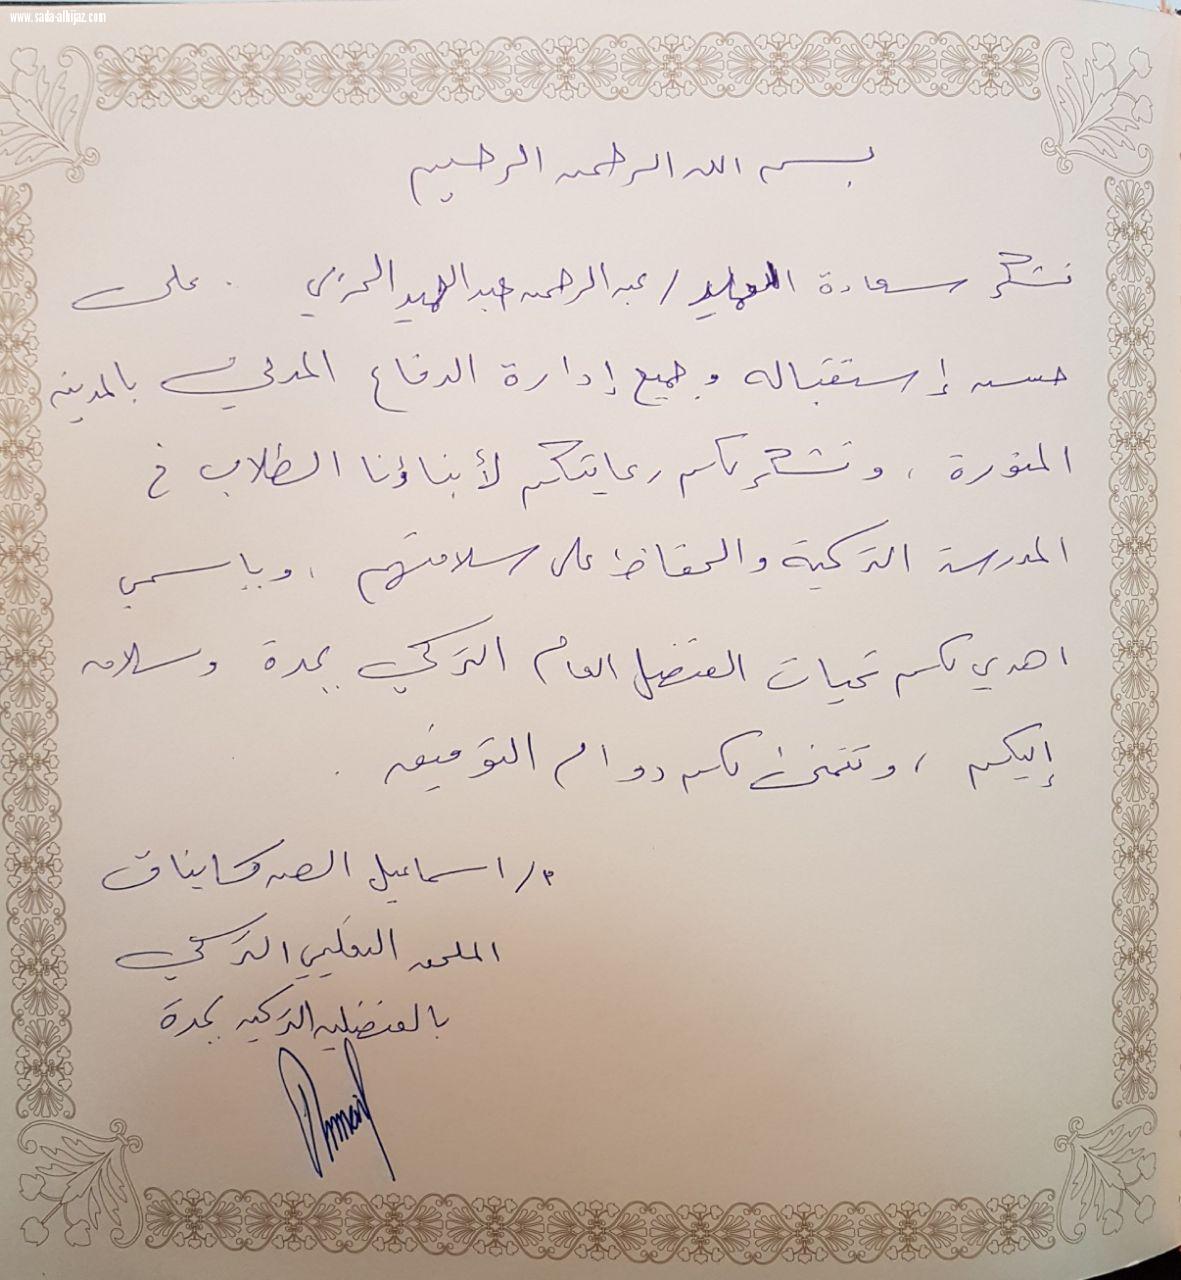 www.sada-alhijaz.com
بسم الله الرحمن الرحيم
نشكر سعادة العميد / عبدالرحمن عبدالحميد الحربي . على
حسن إستقباله وجميع إدارة الدفاع المدني بالمدينه
المنورة ، ونشكركم رعايتكم لأبناؤنا الطلاب في
المدرسة التركية والحفاظ على سلامتهم ، وبإسمي
اهدي لكم تحيات القنصل العام التركي بجدة وسلامه
إليكم ، ونتمنى لكم دوام التوفيق .
م / اسماعيل
الملحق التعليمي التركي
بالقنصليه التركيه بجدة